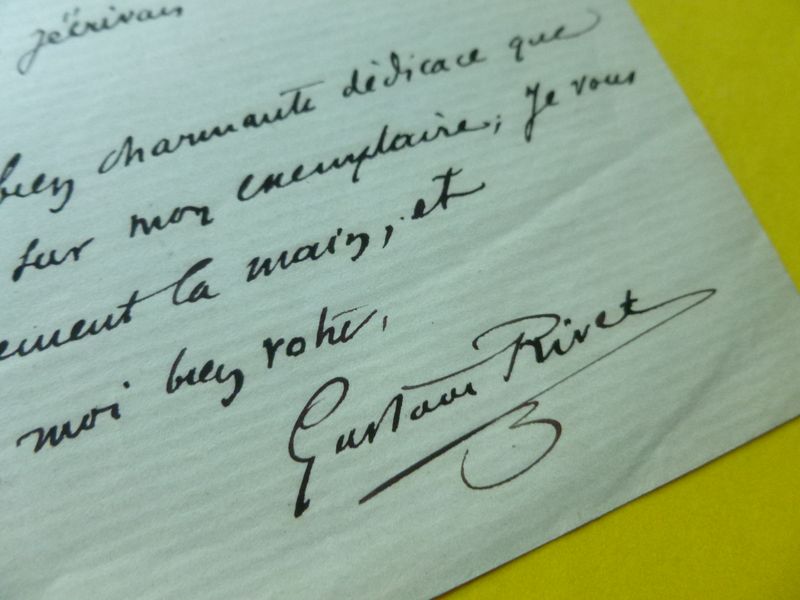 j'écrivais
bien charmante dédicace que
sur mon exemplaire; je vous
ement la main, et
moi bien votre,
Gustave Rivet